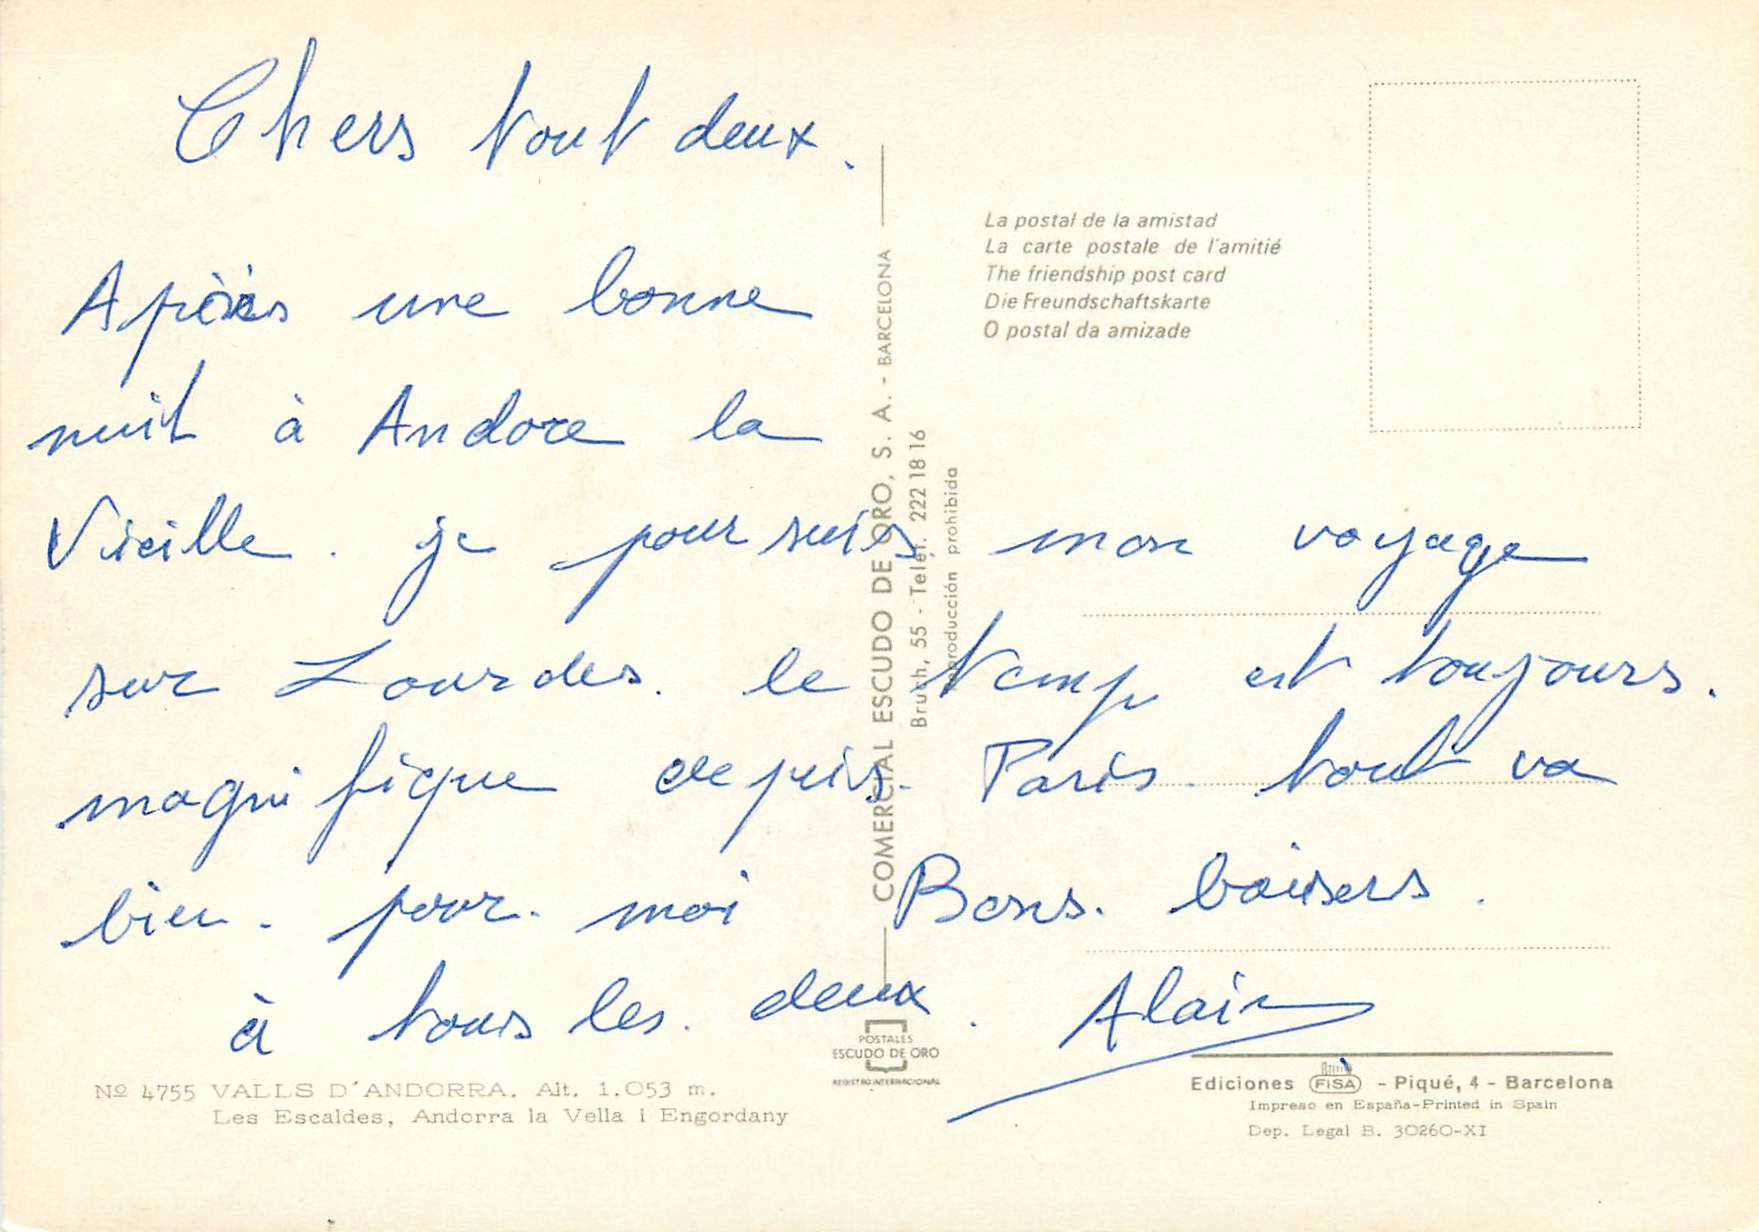 Chers tout deux.
Après une bonne
nuit à Andore la
Vieille. je poursuis mon voyage
sur Lourdes. le temp est toujours.
magnifique depuis. Paris. tout va
bien. pour. moi Bons. baisers.
à tous les. deux. Alain
La postal de la amistad
La carte postale de l'amitié
The friendship post card
Die Freundschaftskarte
O postal da amizade
COMERCIAL ESCUDO DE ORO, S. A. - BARCELONA
Bruch, 55 - Telef. 222 18 16
Reproducción prohibida
POSTALES
ESCUDO DE ORO
REGISTRO INTERNACIONAL
Nº 4755 VALLS D'ANDORRA. Alt. 1.053 m.
Les Escaldes, Andorra la Vella i Engordany
Ediciones FISA - Piqué, 4 - Barcelona
Impreso en España-Printed in Spain
Dep. Legal B. 30260-XI